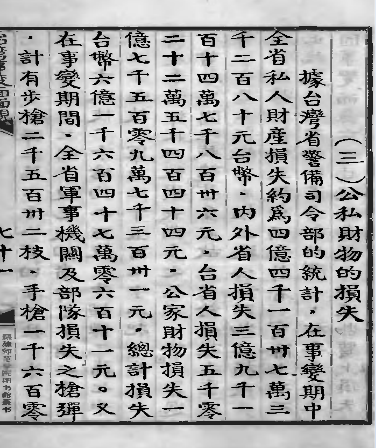 (三)公私財物的損失
據台灣省警備司令部的統計,在事變期中
全省私人財產損失約爲四億四千一百卅七萬三
千二百八十元台幣。內外省人損失三億九千一
百十四萬七千八百卅六元。台省人損失五千零
二十二萬五千四百四十四元。公家財物損失一
億七千五百零九萬七千三百卅一元。總計損失
台幣六億一千六百四十七萬零六百十一元。又
在事變期間。全省軍事機關及部隊損失之槍彈
。計有步槍二千五百卅二枝。手槍一千六百零
七十一